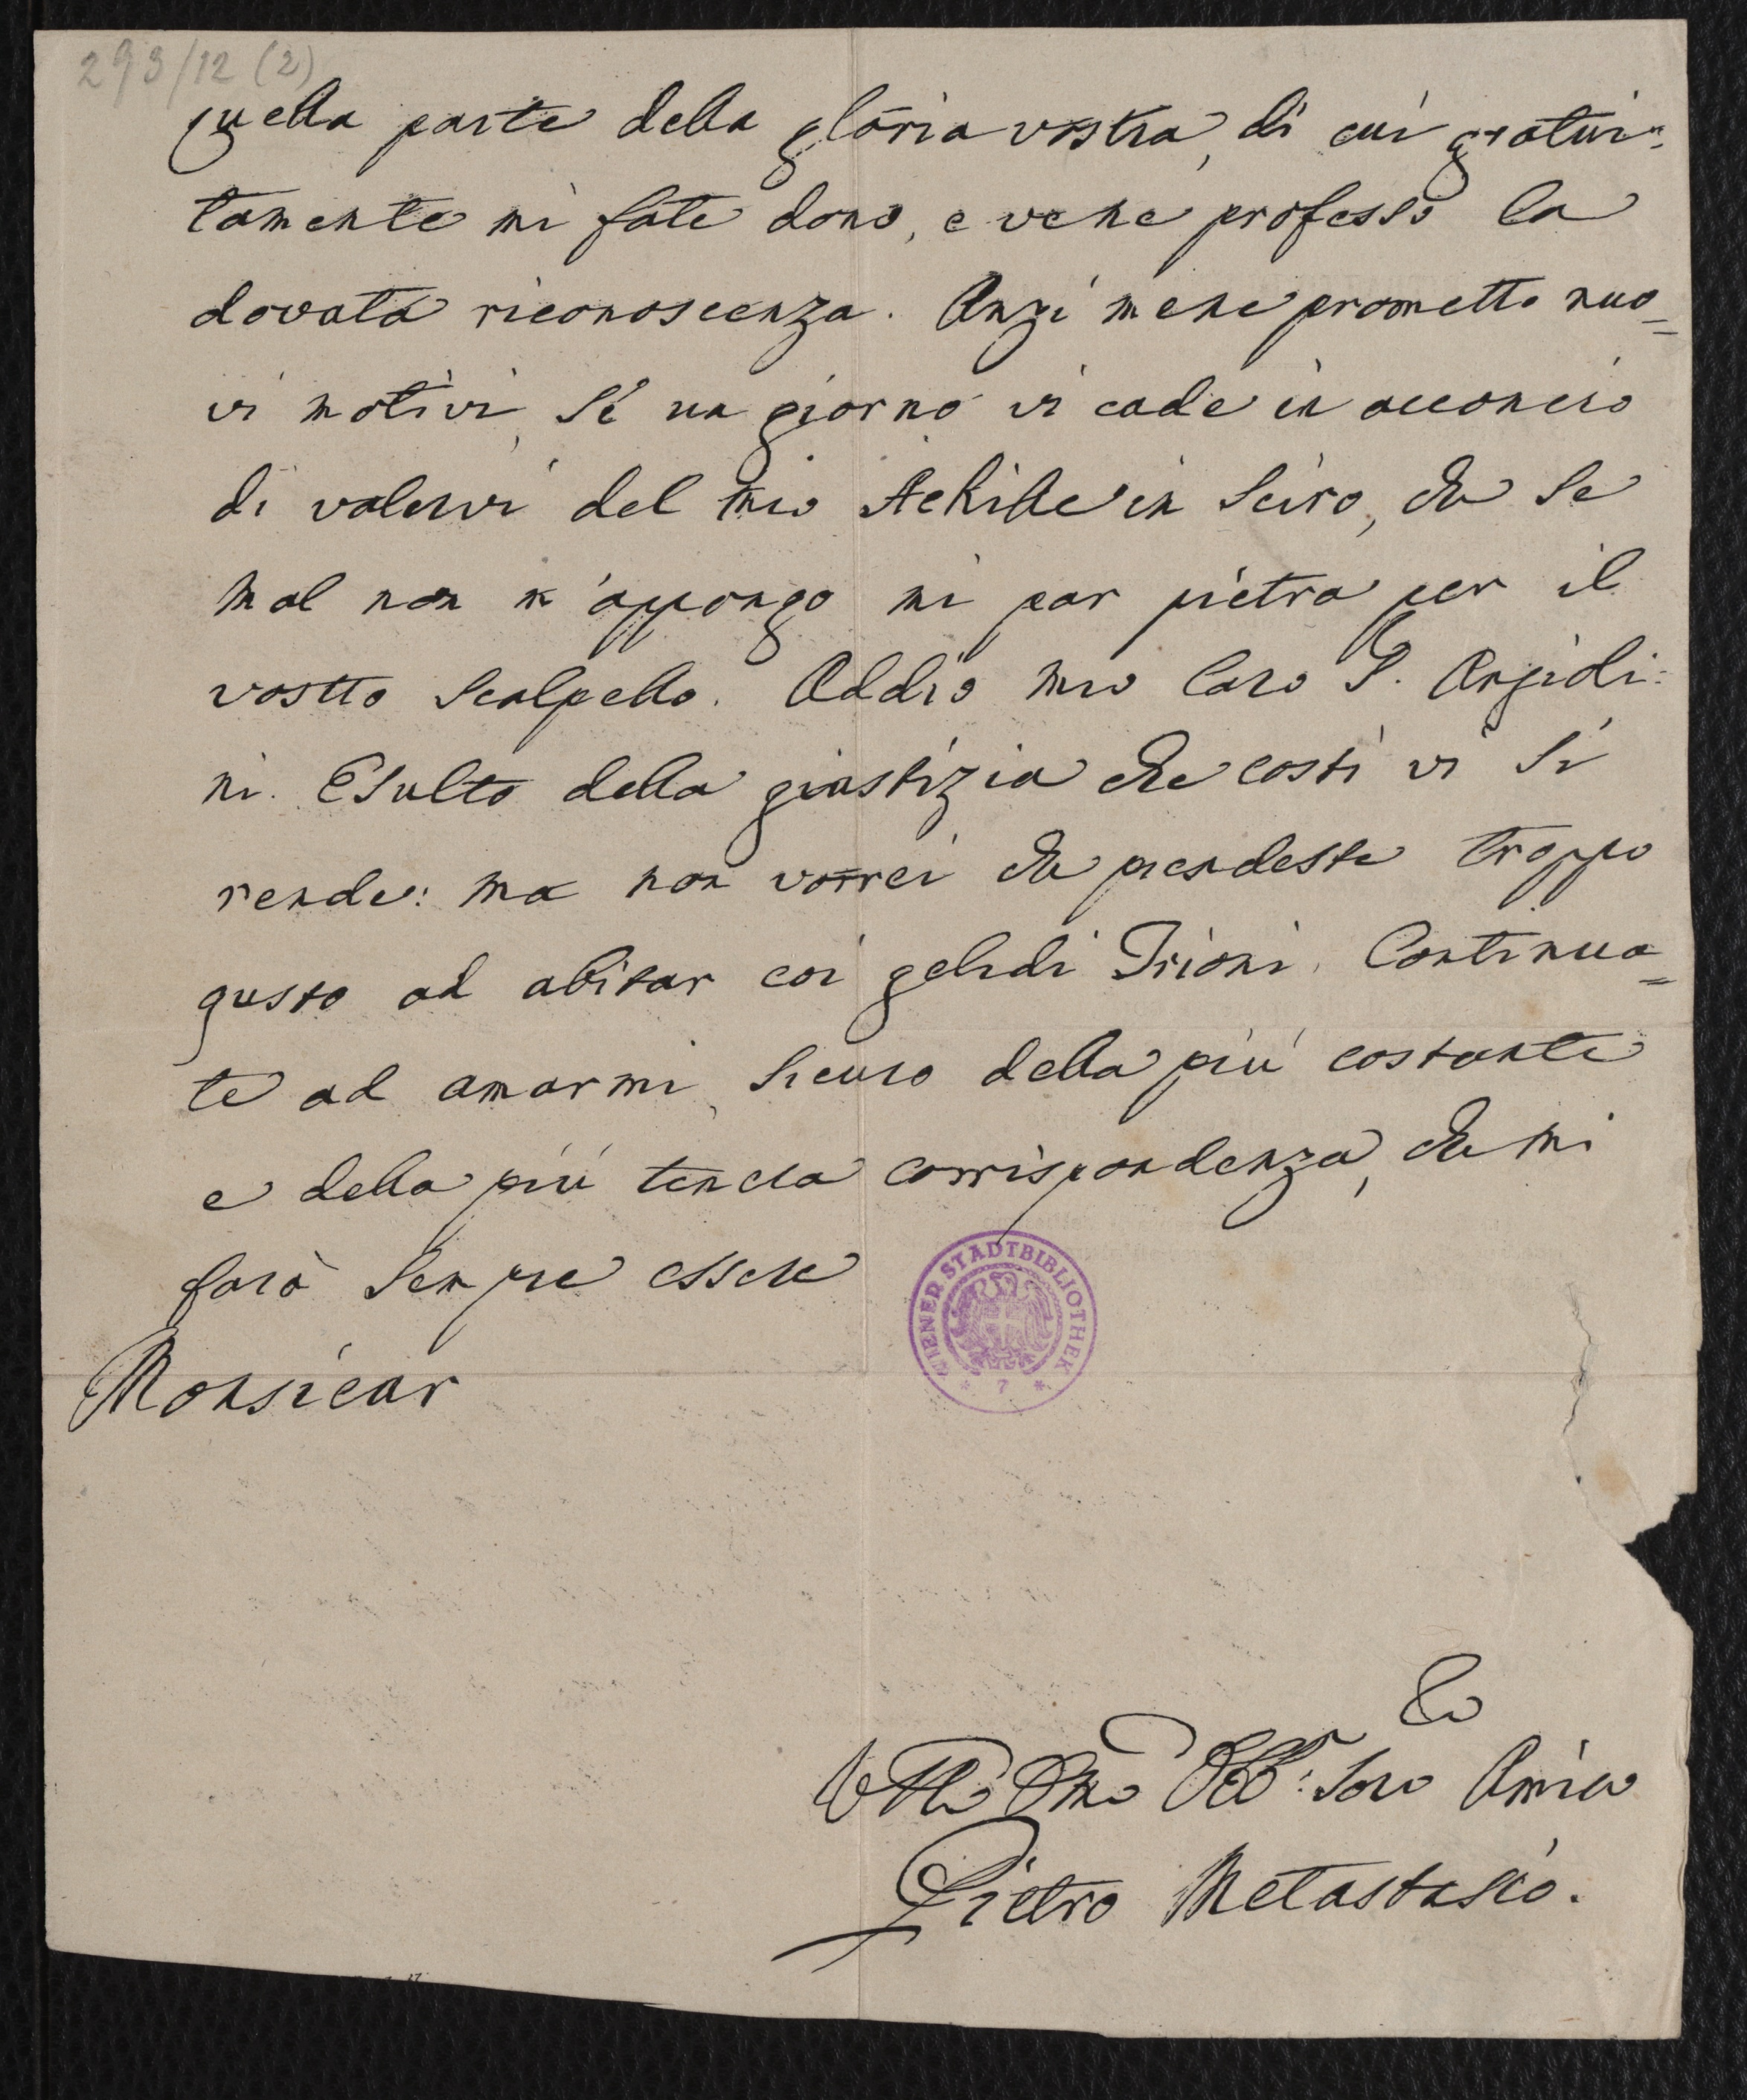 293/12 (2)
quella parte della gloria vostra, di cui gratui=
tamente mi fate dono, e vene professo la
dovuta riconoscenza. Anzi mene prometto nuo=
vi motivi, se un giorno vi cade in acconcio
di valervi del mio Achille in Sciro, che se
mal non m'appongo mi par pietra per il
vostro scalpello. Addio mio Caro S.
ni. Esulto della giustizia che costì vi si
rende: ma non vorrei che prendeste troppo
gusto ad abitar coi gelidi Trioni. Continua=
te ad amarmi, sicuro della più costante
e della più tenera corrispondenza, che mi
farà sempre essere
Monsieur
Amico
Pietro Metastasio.
WIENER STADTBIBLIOTHEK
* 7 *